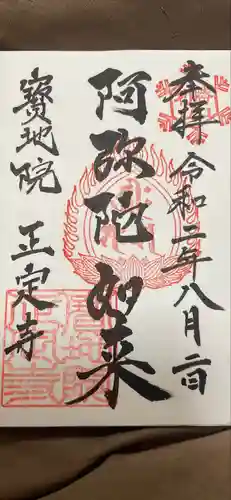 奉拝 令和二年八月二日
阿弥陀如来
寶地院 正定寺